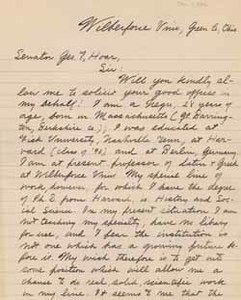 Wilberforce Univ, Green Co, Ohio
Senator Geo F. Hoar,
Sir:
Will you kindly al-
low me to solicit your good offices in
my behalf? I am a Negro, 28 years of
age, born in Massachusetts (Gt. Barring-
ton, Berkshire Co.); I was educated at
Fisk University, Nashville Tenn, at Har-
vard (class of '90) and at Berlin, Germany.
I am at present professor of Latin & Greek
at Wilberforce Univ. My special line of
work however, for which I have the degree
of Ph.D. from Harvard, is History and So-
cial Science. In my present situation I am
not teaching my specialty, have no library
for use, and I fear the institution is
not one which has a growing future be-
fore it. My wish therefore is to get into
some position which will allow me a
chance to do real solid, scientific work
in my line. It seems to me that the